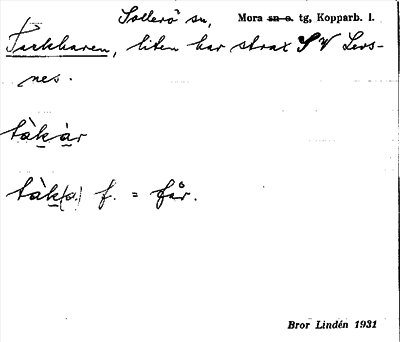 Sollerö sn, Mora sn o. tg, Kopparb. l.
Tackharen, liten har strax SV Levs-
nes.
tàkàr
tàk(a) f. = får.
Bror Lindén 1931